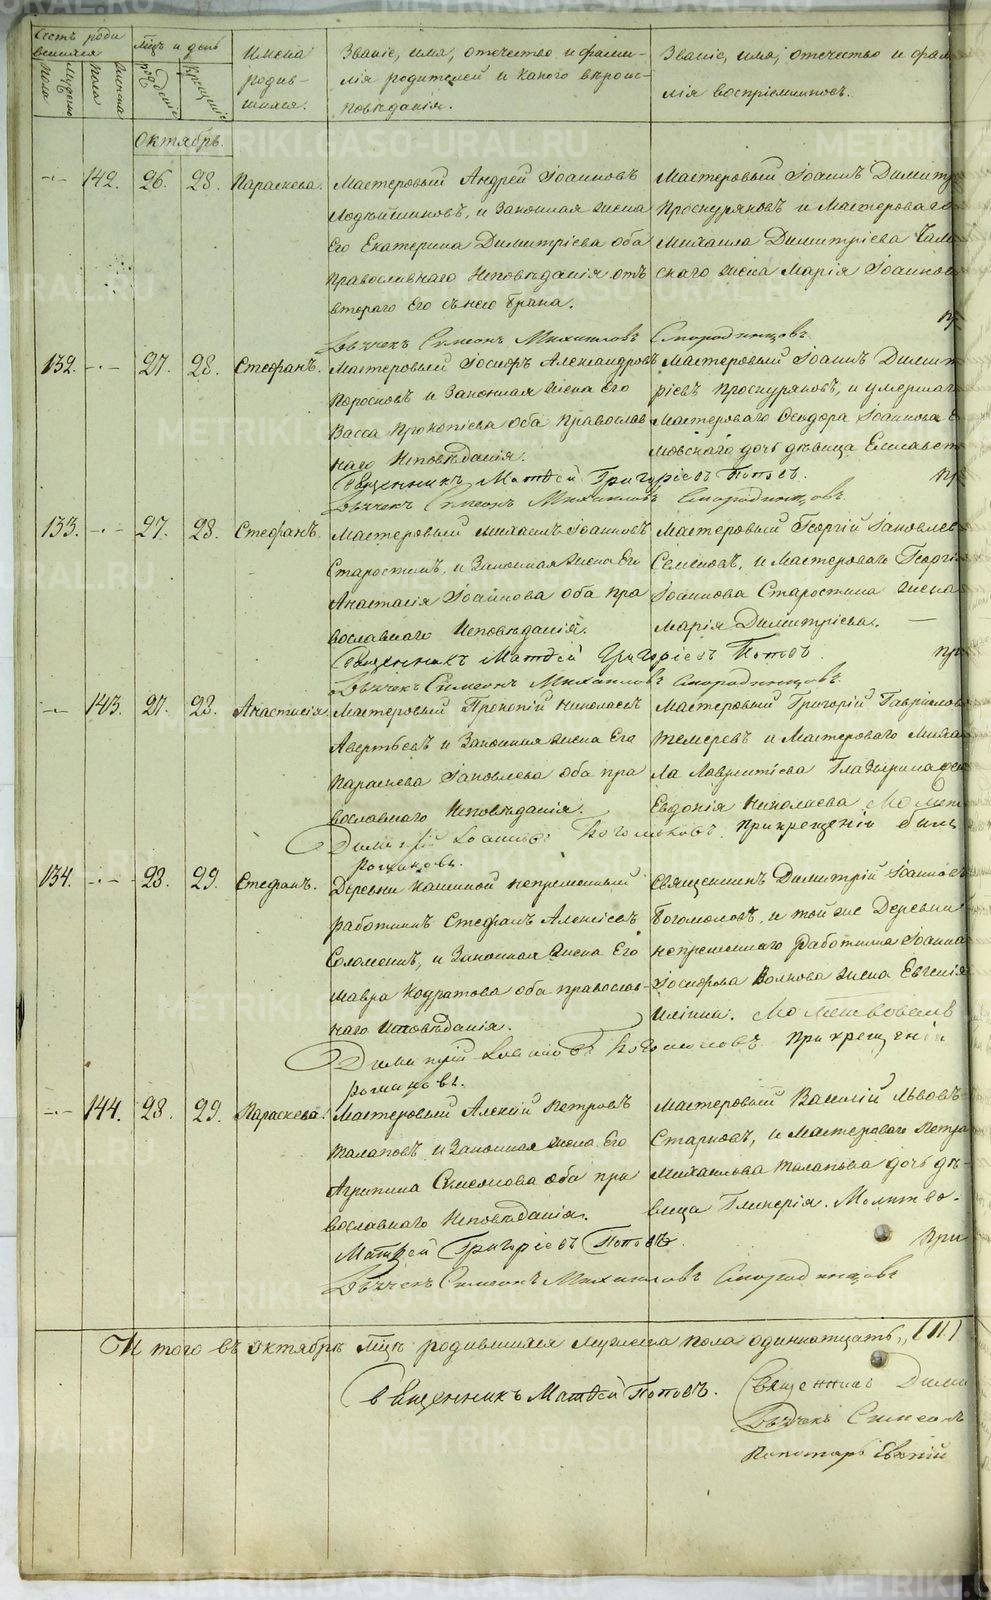 Счетъ роди
вшихся
Мужеска
пола
Женска
пола
Мцъ и день
рожденія
Крещенія
Имена
родив-
шихся.
Званіе, имя, отечество и фами-
лія родителей и какого вѣроис-
повѣданія.
Званіе, имя, отечество и фам
лія воспріемниковъ.
Октябрь.
142. 26. 28. Параскева.
Мастеровый Андрей Іоанновъ
и Законная жена
Его Екатерина Димитріева оба
Православнаго Исповѣданія отъ
втораго Его съ нею брака.
Мастеровый Іоаннъ Димитр
Проскуряковъ и Мастероваго
Михаила Димитріева
скаго жена Марія Іоаннов
Дьячекъ Симеонъ Михаиловъ Смородинцовъ
132. 27. 28. Стефанъ.
Мастеровый Іосифъ Александровъ
и Законная жена Его
Васса Прокопіева оба Православ
наго Исповѣданія.
Мастеровый Іоаннъ Димит
ріевъ Проскуряковъ, и умершаго
Мастероваго Ѳеодора Іоаннова
мовскаго дочь дѣвица Елисавет
Священникъ Матѳей Григоріевъ Поповъ.
Дьячекъ Симеонъ Михаиловъ Смородинцовъ
133. 27. 28. Стефанъ.
Мастеровый Михаилъ Іоанновъ
Старостинъ, и Законная жена Его
Анастасія Іоаннова оба пра
вославнаго Исповѣданія.
Мастеровый Георгій Іаковлев
Семеновъ, и Мастероваго Георгі
Іоаннова Старостина жена
Марія Димитріева.
Священникъ Матѳей Григоріевъ Поповъ
Дьячекъ Симеонъ Михаиловъ Смородинцовъ
143. 27. 28. Анастасія.
Мастеровый Прокопій Николаевъ
Авертьевъ и Законная жена Его
Параскева Іаковлева оба пра
вославнаго Исповѣданія.
Мастеровый Григорій Гавриилов
Темеревъ и Мастероваго Миха
ла Лаврентіева Гладырина же
Евдокія Николаева Молит
Димитрій Іоанновъ Богомоловъ. При крещеніи былъ
Романовъ.
134. 28. 29. Стефанъ.
Деревни Кашиной непремѣнный
работникъ Стефанъ Алексіевъ
Соломеинъ, и Законная жена Его
Мавра Кодратова оба православ-
наго Исповѣданія.
Священникъ Димитрій Іоаннов
Богомоловъ, и той же Деревни
непремѣннаго работника Іоанна
Іосифова Волкова жена Евгенія
Молитвовалъ
Димитрій Іоанновъ Богомоловъ При крещеніи
Романовъ.
144. 28. 29. Параскева.
Мастеровый Алексій Петровъ
Талаповъ и Законная жена Его
Агрипина Симеонова оба пра
вославнаго Исповѣданія.
Мастеровый Василій Львовъ
Старковъ, и Мастероваго Петра
Михаилова Талапова дочь дѣ-
вица Гликерія. Молитво-
Матѳей Григоріевъ Поповъ. При
Дьячекъ Симеонъ Михаиловъ Смородинцовъ
И того въ октябрѣ мцѣ родившихся мужеска пола одиннатцать, (11)
Священникъ Матѳей Поповъ.
Священникъ Дими
Дьячекъ Симеонъ
Пономарь Евѳимій
METRIKI.GASO-URAL.RU